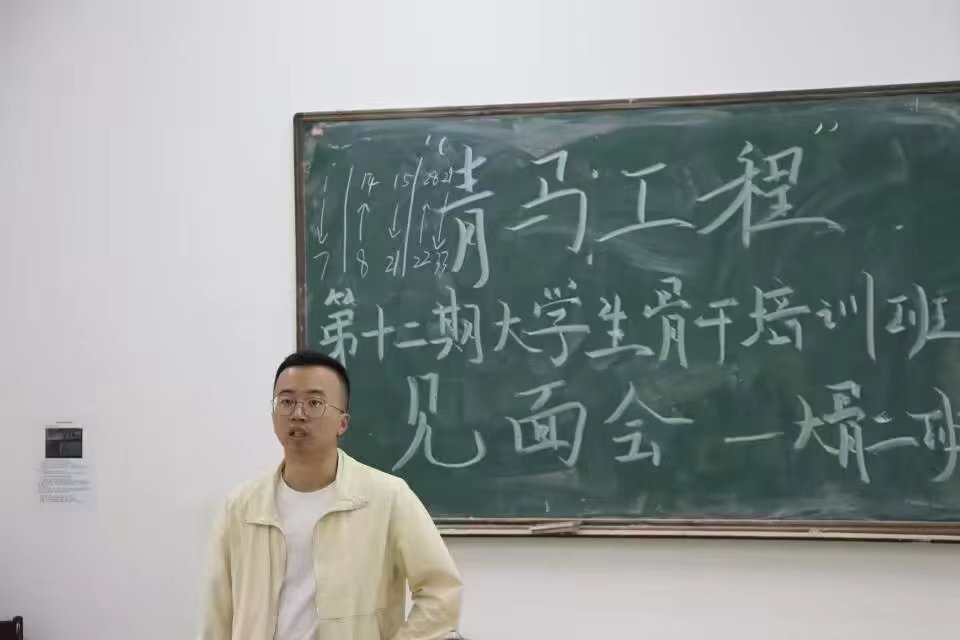 “青马工程”
1 14 15 28 21
7 8 21 22 33
第十二期大学生骨干培训班
见面会
—大骨二班